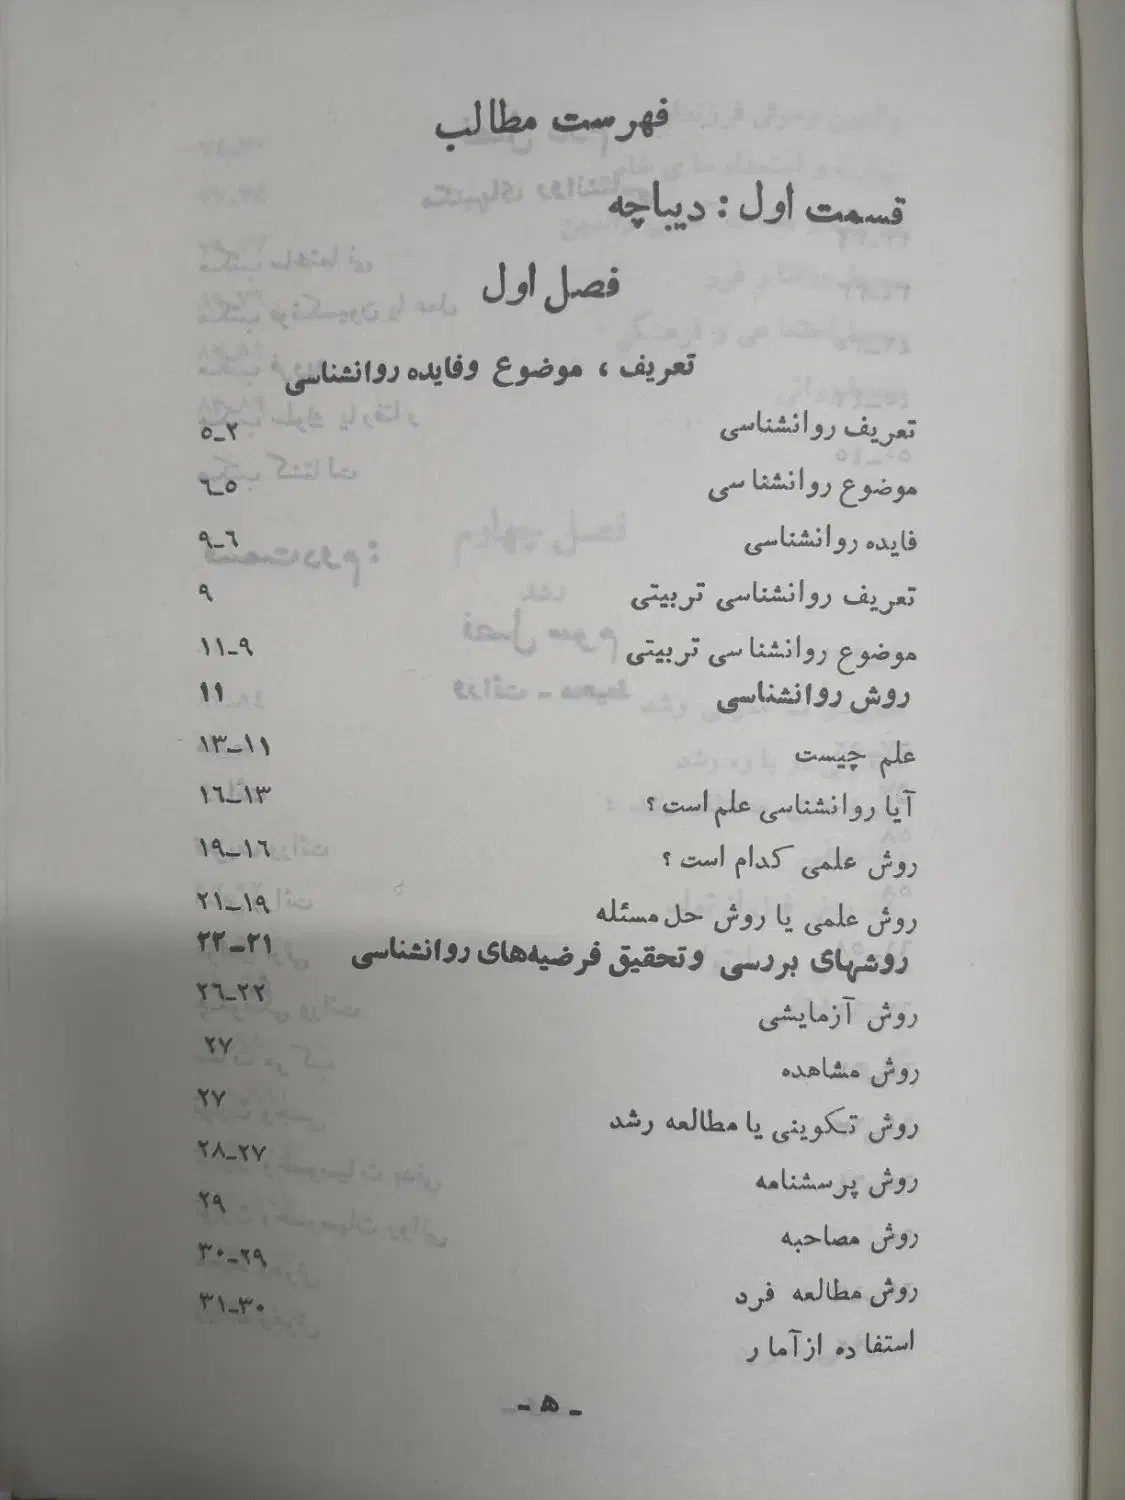 فهرست مطالب
قسمت اول : دیباچه
فصل اول
تعریف ، موضوع وفایده روانشناسی
تعریف روانشناسی ۲_۵
موضوع روانشناسی ۵_۶
فایده روانشناسی ۶_۹
تعریف روانشناسی تربیتی ۹
موضوع روانشناسی تربیتی ۹_۱۱
روش روانشناسی ۱۱
علم چیست ۱۱_۱۳
آیا روانشناسی علم است ؟ ۱۳_۱۶
روش علمی کدام است ؟ ۱۶_۱۹
روش علمی یا روش حل مسئله ۱۹_۲۱
روشهای بررسی وتحقیق فرضیه‌های روانشناسی ۲۱_۲۲
روش آزمایشی ۲۲_۲۶
روش مشاهده ۲۷
روش تکوینی یا مطالعه رشد ۲۷
روش پرسشنامه ۲۷_۲۸
روش مصاحبه ۲۹
روش مطالعه فرد ۲۹_۳۰
استفاده ازآمار ۳۰_۳۱
- ه -